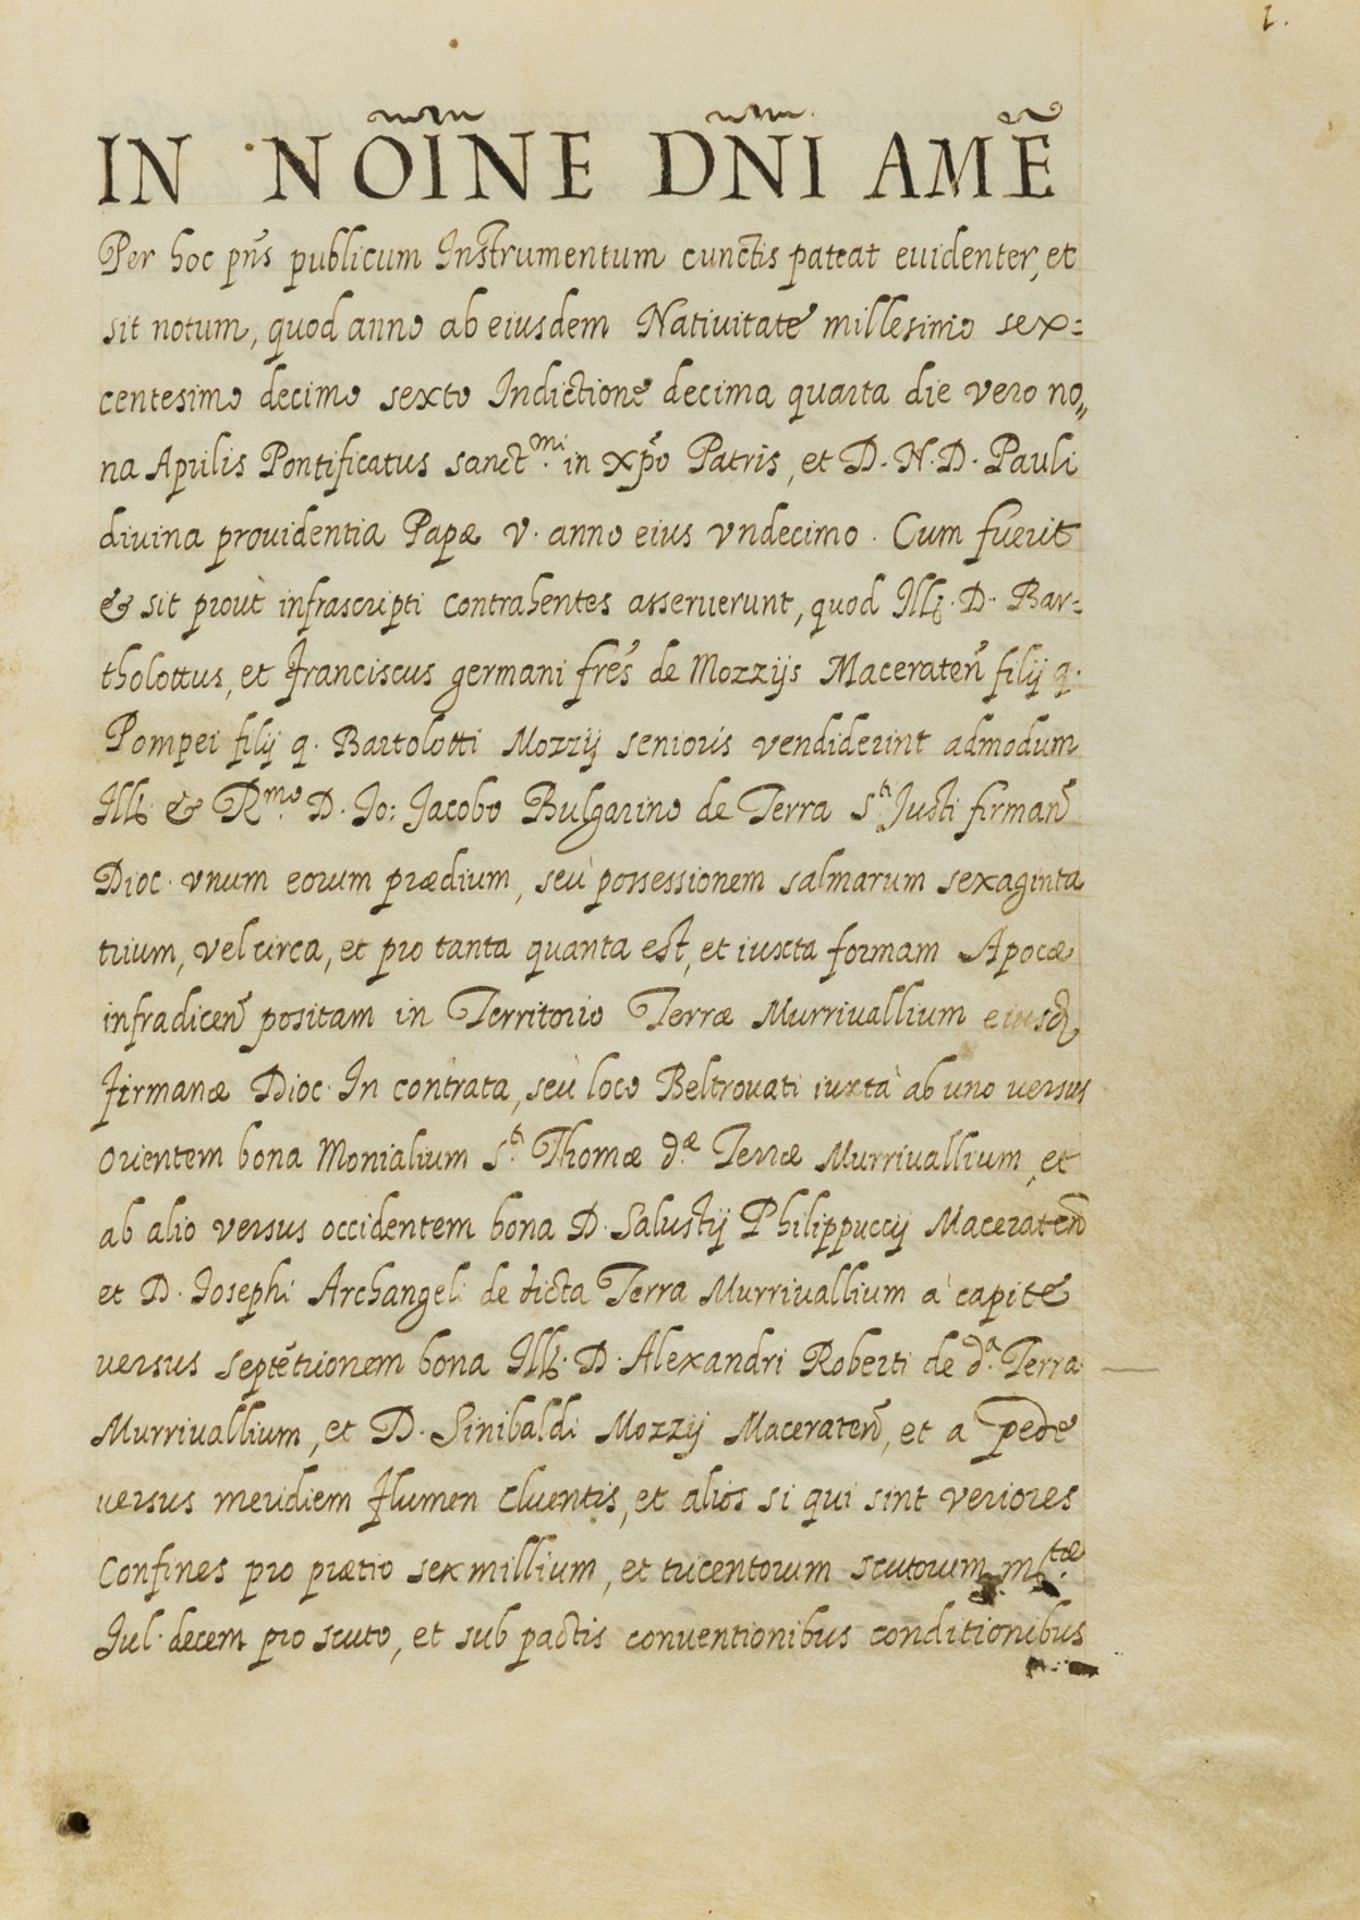 1.
IN NOĪNE DN̄I AMĒ
Per hoc pn̄s publicum Instrumentum cunctis pateat euidenter, et
sit notum, quod anno ab eiusdem Natiuitate millesimo sex=
centesimo decimo sexto Indictione decima quarta die vero no„
na Aprilis Pontificatus sanct.mi in xp̄o Patris, et D. N. D. Pauli
diuina prouidentia Papæ V. anno eius vndecimo. Cum fuerit
& sit prout̀ infrascripti contrahentes asseruerunt, quod Ill. D. Bar=
tholottus, et Franciscus germani fr̄es de Mozzijs Maceraten̄ filij q.
Pompei filij q. Bartolotti Mozzij senioris vendiderint admodum
Ill. & R.mo D. Jo: Jacobo Bulgarino de Terra S.ti Justi firman̄
Dioc. vnum eorum prædium, seù possessionem salmarum sexaginta
trium, vel circa, et pro tanta quanta est, et iuxta formam Apocæ
infradicen̄ positam in Territorio Terræ Murriuallium eiusd
firmanæ Dioc. In contrata, seù loco Beltrouati iuxtà ab uno versus
orientem bona Monialium S.ti Thomæ d.æ Terræ Murriuallium, et
ab alio versus occidentem bona D. Salustij Philippuccij Maceraten̄
et D. Josephi Archangeli de dicta Terra Murriuallium à capite
versus septētrionem bona Ill. D. Alexandri Roberti de d.a Terra
Murriuallium, et D. Sinibaldi Mozzij Maceraten̄, et a pede
versus meridiem flumen Cluentis, et alios si qui sint veriores
Confines pro prætio sex millium, et tricentorum scutorum m.tæ
Iul. decem pro scuto, et sub pactis conuentionibus conditionibus